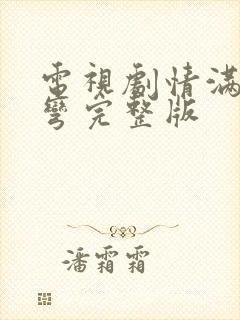 電視劇情滿
彎完整版
潘霜霜